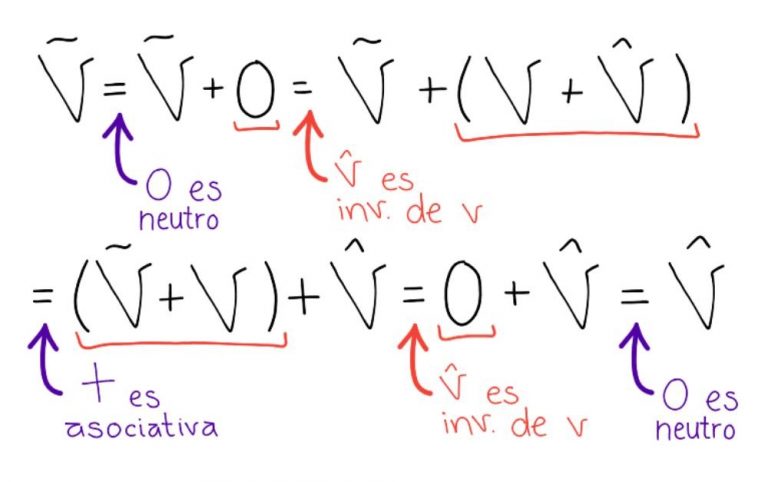 Ṽ = Ṽ + 0 = Ṽ + (V + V̂)
0 es
neutro
v̂ es
inv. de v
= (Ṽ + V) + V̂ = 0 + V̂ = V̂
+ es
asociativa
v̂ es
inv. de v
0 es
neutro